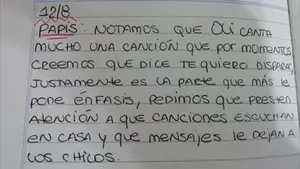 12/8
PAPIS: NOTAMOS QUE OLI CANTA
MUCHO UNA CANCIÓN QUE POR MOMENTOS
CREEMOS QUE DICE TE QUIERO DISPARAR,
JUSTAMENTE ES LA PARTE QUE MÁS LE
PONE ÉNFASIS, PEDIMOS QUE PRESTEN
ATENCIÓN A QUE CANCIONES ESCUCHAN
EN CASA Y QUE MENSAJES LE DEJAN A
LOS CHICOS.